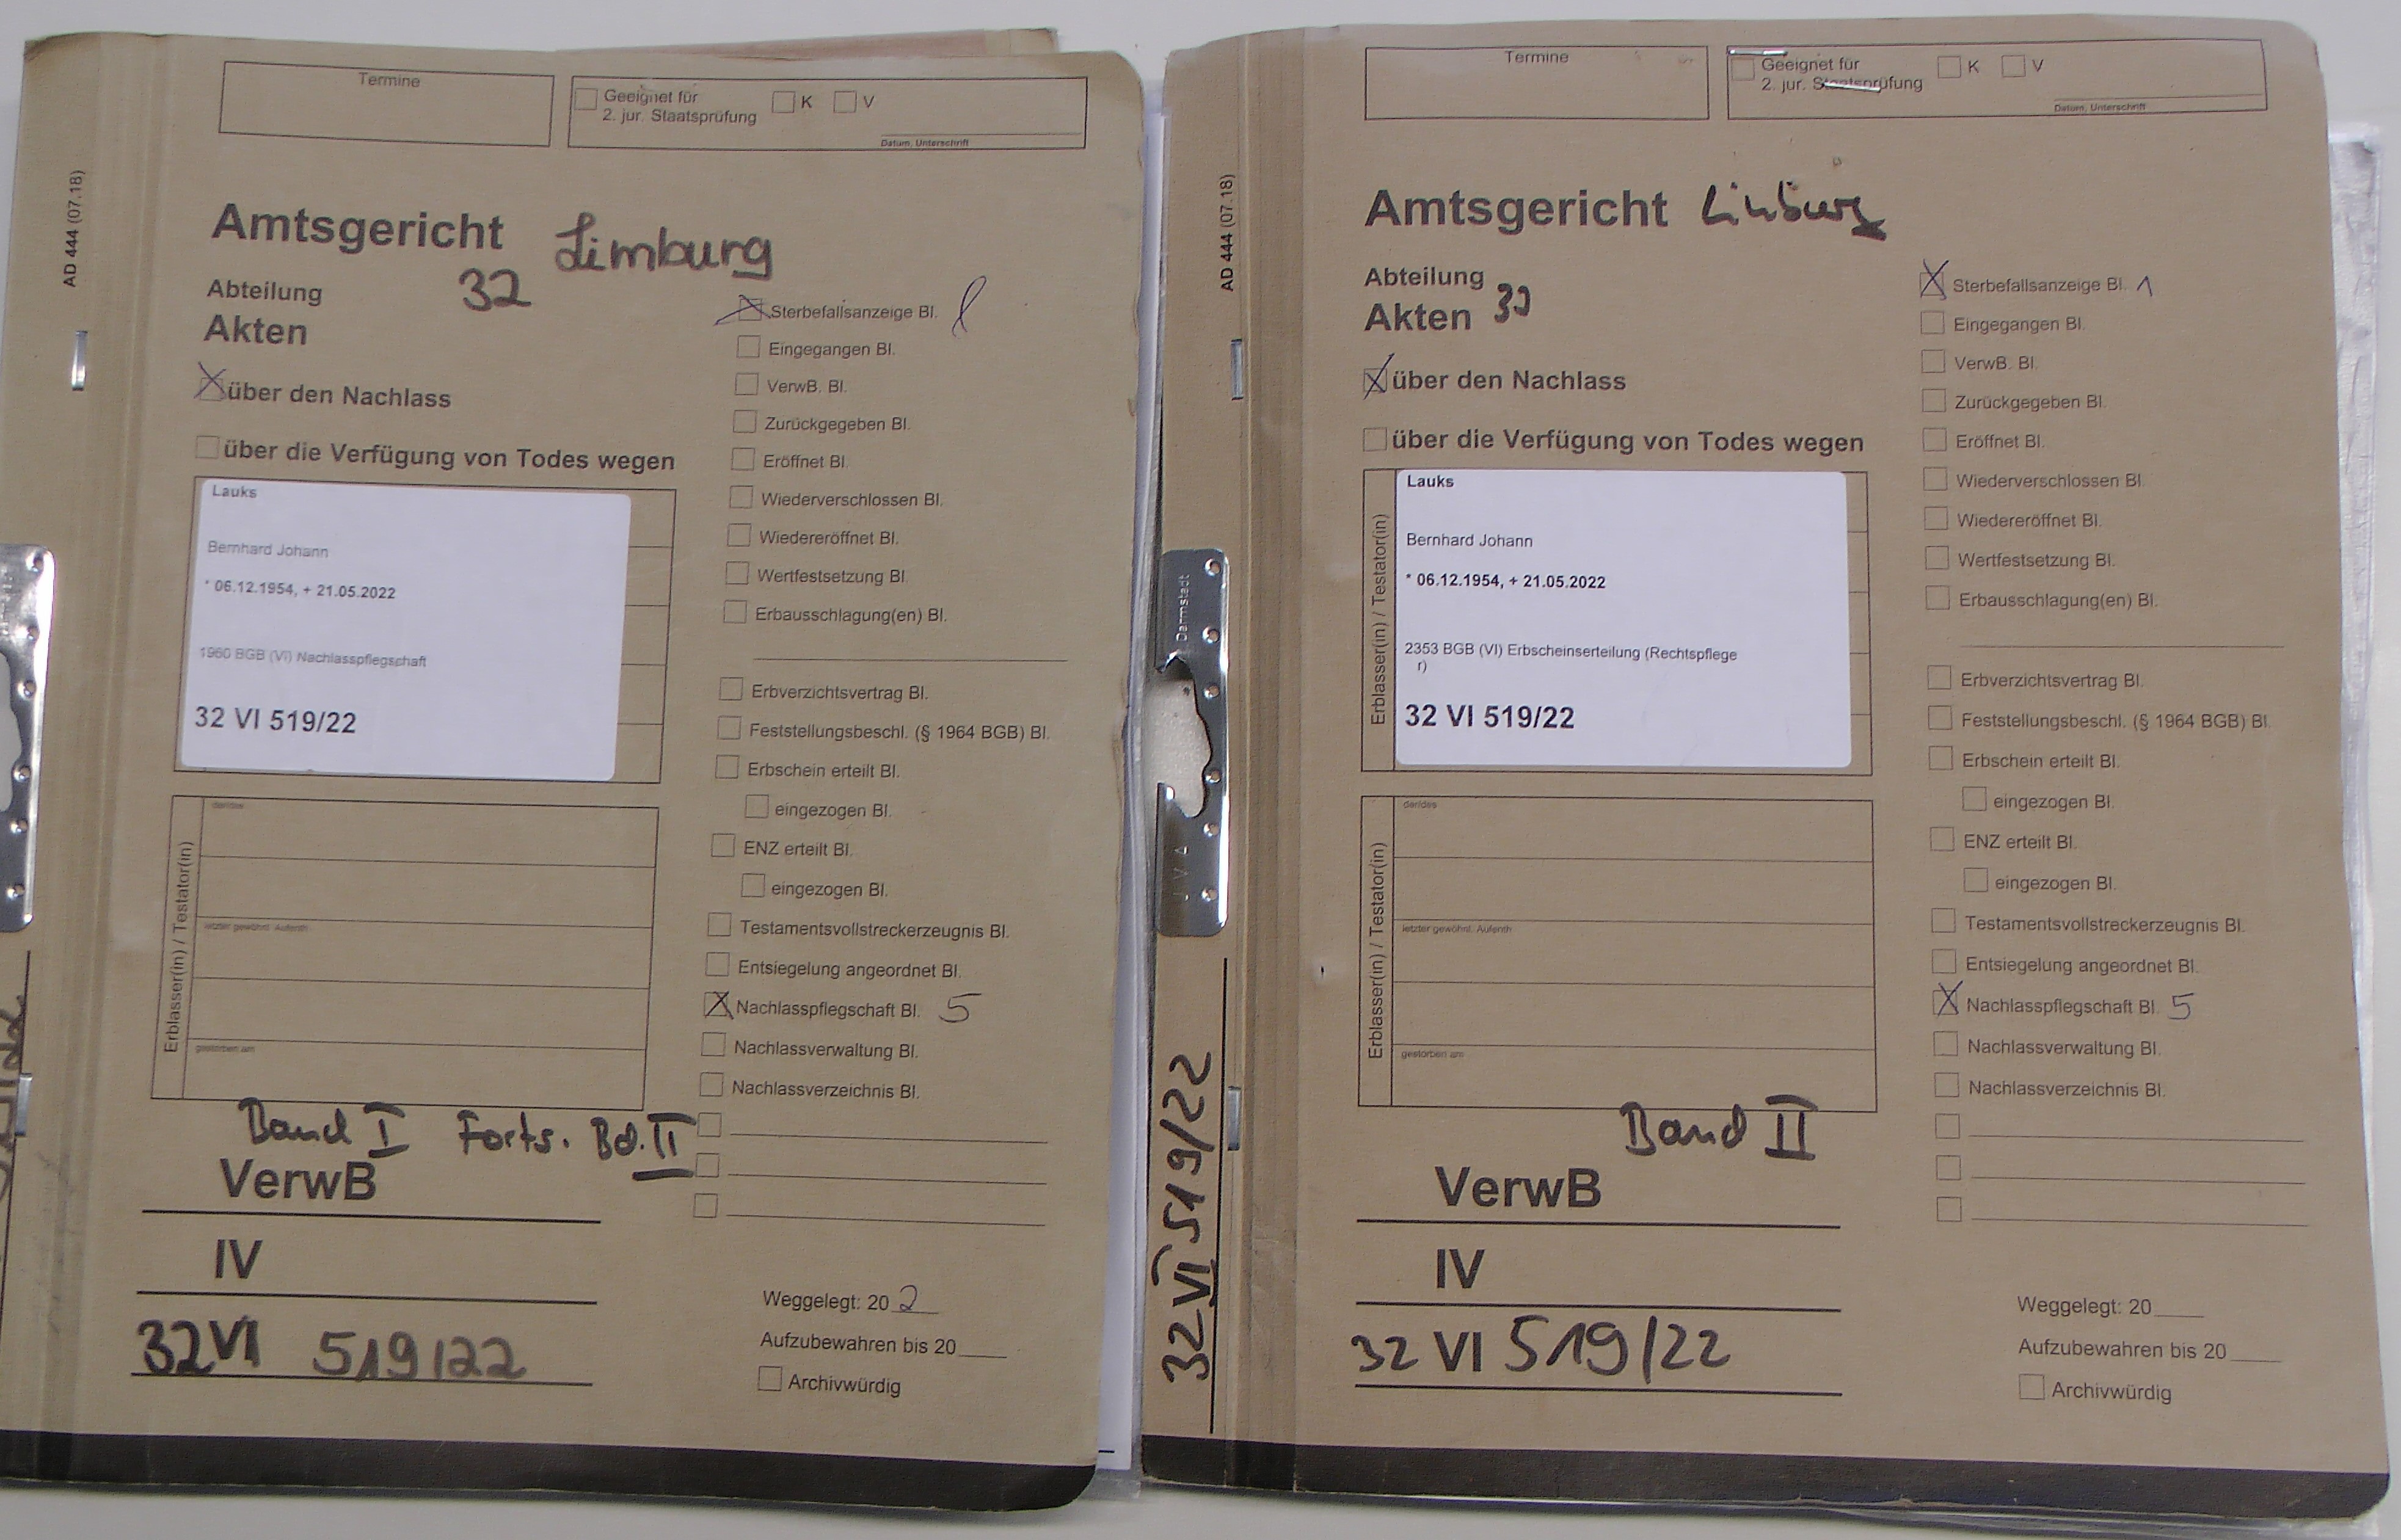 Termine
Geeignet für
2. jur. Staatsprüfung
K
V
Datum, Unterschrift
AD 444 (07.18)
Amtsgericht Limburg
Abteilung 32
Akten
über den Nachlass
über die Verfügung von Todes wegen
Lauks
Bernhard Johann
* 06.12.1954, + 21.05.2022
1960 BGB (VI) Nachlasspflegschaft
32 VI 519/22
Erblasser(in) / Testator(in)
der/des
letzter gewöhnl. Aufenth
gestorben am
Band I Forts. Bd. II
VerwB
IV
32 VI 519/22
Sterbefallsanzeige Bl.
Eingegangen Bl.
VerwB. Bl.
Zurückgegeben Bl.
Eröffnet Bl.
Wiederverschlossen Bl.
Wiedereröffnet Bl.
Wertfestsetzung Bl.
Erbausschlagung(en) Bl.
Erbverzichtsvertrag Bl.
Feststellungsbeschl. (§ 1964 BGB) Bl.
Erbschein erteilt Bl.
eingezogen Bl.
ENZ erteilt Bl.
eingezogen Bl.
Testamentsvollstreckerzeugnis Bl.
Entsiegelung angeordnet Bl.
Nachlasspflegschaft Bl. 5
Nachlassverwaltung Bl.
Nachlassverzeichnis Bl.
Weggelegt: 202
Aufzubewahren bis 20
Archivwürdig
Termine
Geeignet für
2. jur. Staatsprüfung
K
V
Datum, Unterschrift
AD 444 (07.18)
Darmstadt
JVA
32 VI 519/22
Amtsgericht Limburg
Abteilung
Akten
über den Nachlass
über die Verfügung von Todes wegen
Erblasser(in) / Testator(in)
Lauks
Bernhard Johann
* 06.12.1954, + 21.05.2022
2353 BGB (VI) Erbscheinserteilung (Rechtspflege
r)
32 VI 519/22
Erblasser(in) / Testator(in)
der/des
letzter gewöhnl. Aufenth
gestorben am
Band II
VerwB
IV
32 VI 519/22
Sterbefallsanzeige Bl. 1
Eingegangen Bl.
VerwB. Bl.
Zurückgegeben Bl.
Eröffnet Bl.
Wiederverschlossen Bl.
Wiedereröffnet Bl.
Wertfestsetzung Bl.
Erbausschlagung(en) Bl.
Erbverzichtsvertrag Bl.
Feststellungsbeschl. (§ 1964 BGB) Bl.
Erbschein erteilt Bl.
eingezogen Bl.
ENZ erteilt Bl.
eingezogen Bl.
Testamentsvollstreckerzeugnis Bl.
Entsiegelung angeordnet Bl.
Nachlasspflegschaft Bl. 5
Nachlassverwaltung Bl.
Nachlassverzeichnis Bl.
Weggelegt: 20
Aufzubewahren bis 20
Archivwürdig